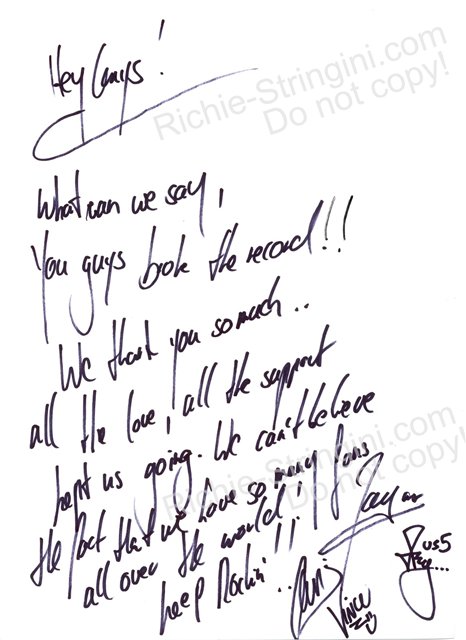 Hey Guys!
Richie-Stringini.com
Do not copy!
What can we say,
You guys broke the record!!!
We thank you so much..
all the love, all the support
kept us going. We can't believe
the fact that we have so many fans
all over the world!
keep Rockin!!..
Richie-Stringini.com
Do not copy!
Jay
Chris
Vince
US5